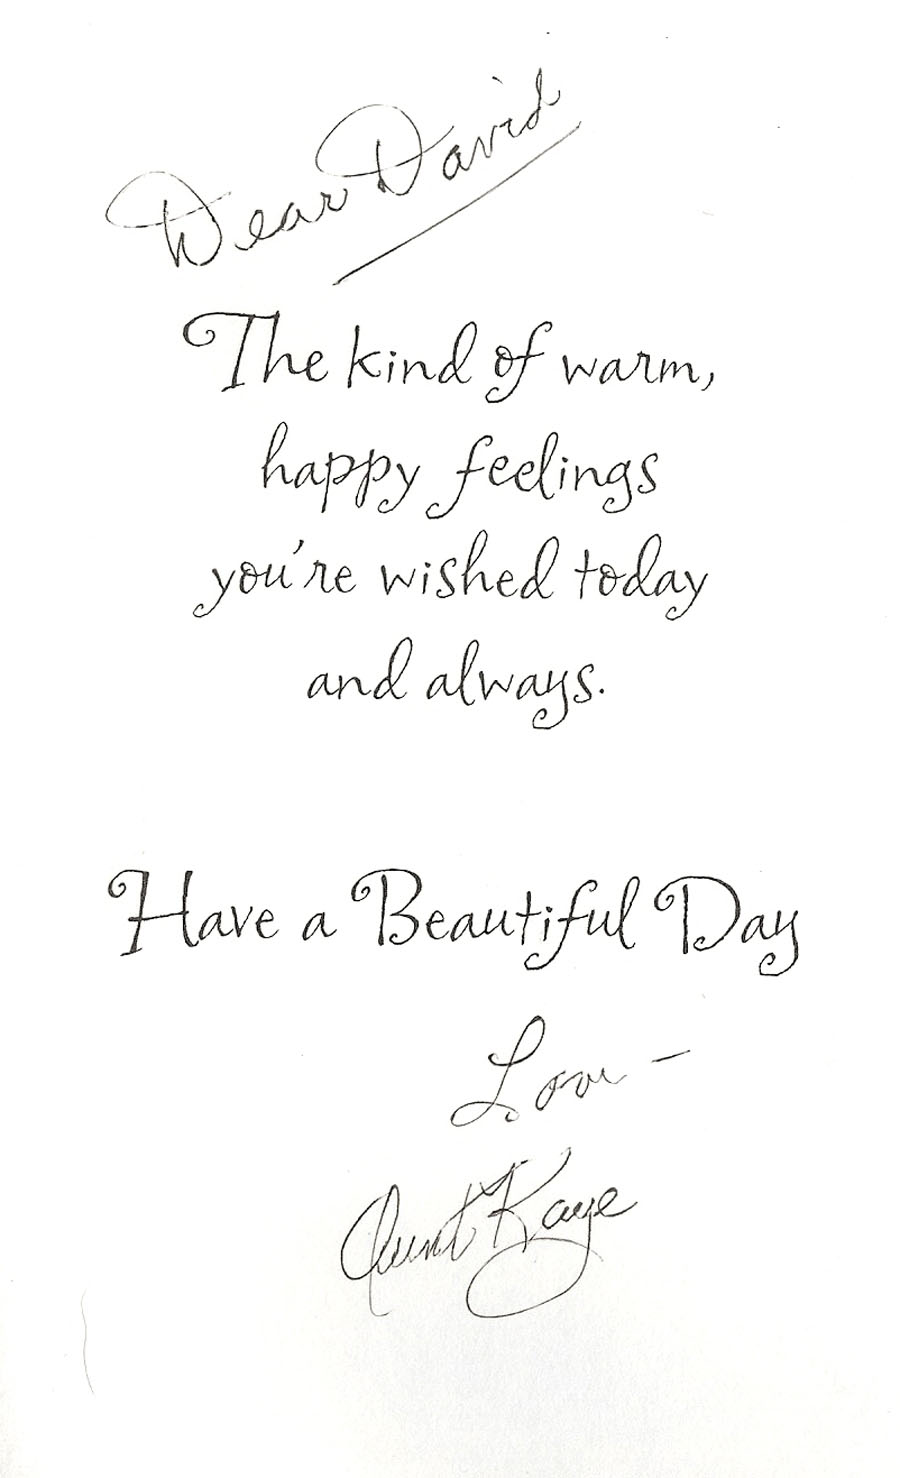 Dear David
The kind of warm,
happy feelings
you're wished today
and always.
Have a Beautiful Day
Love -
Aunt Kaye